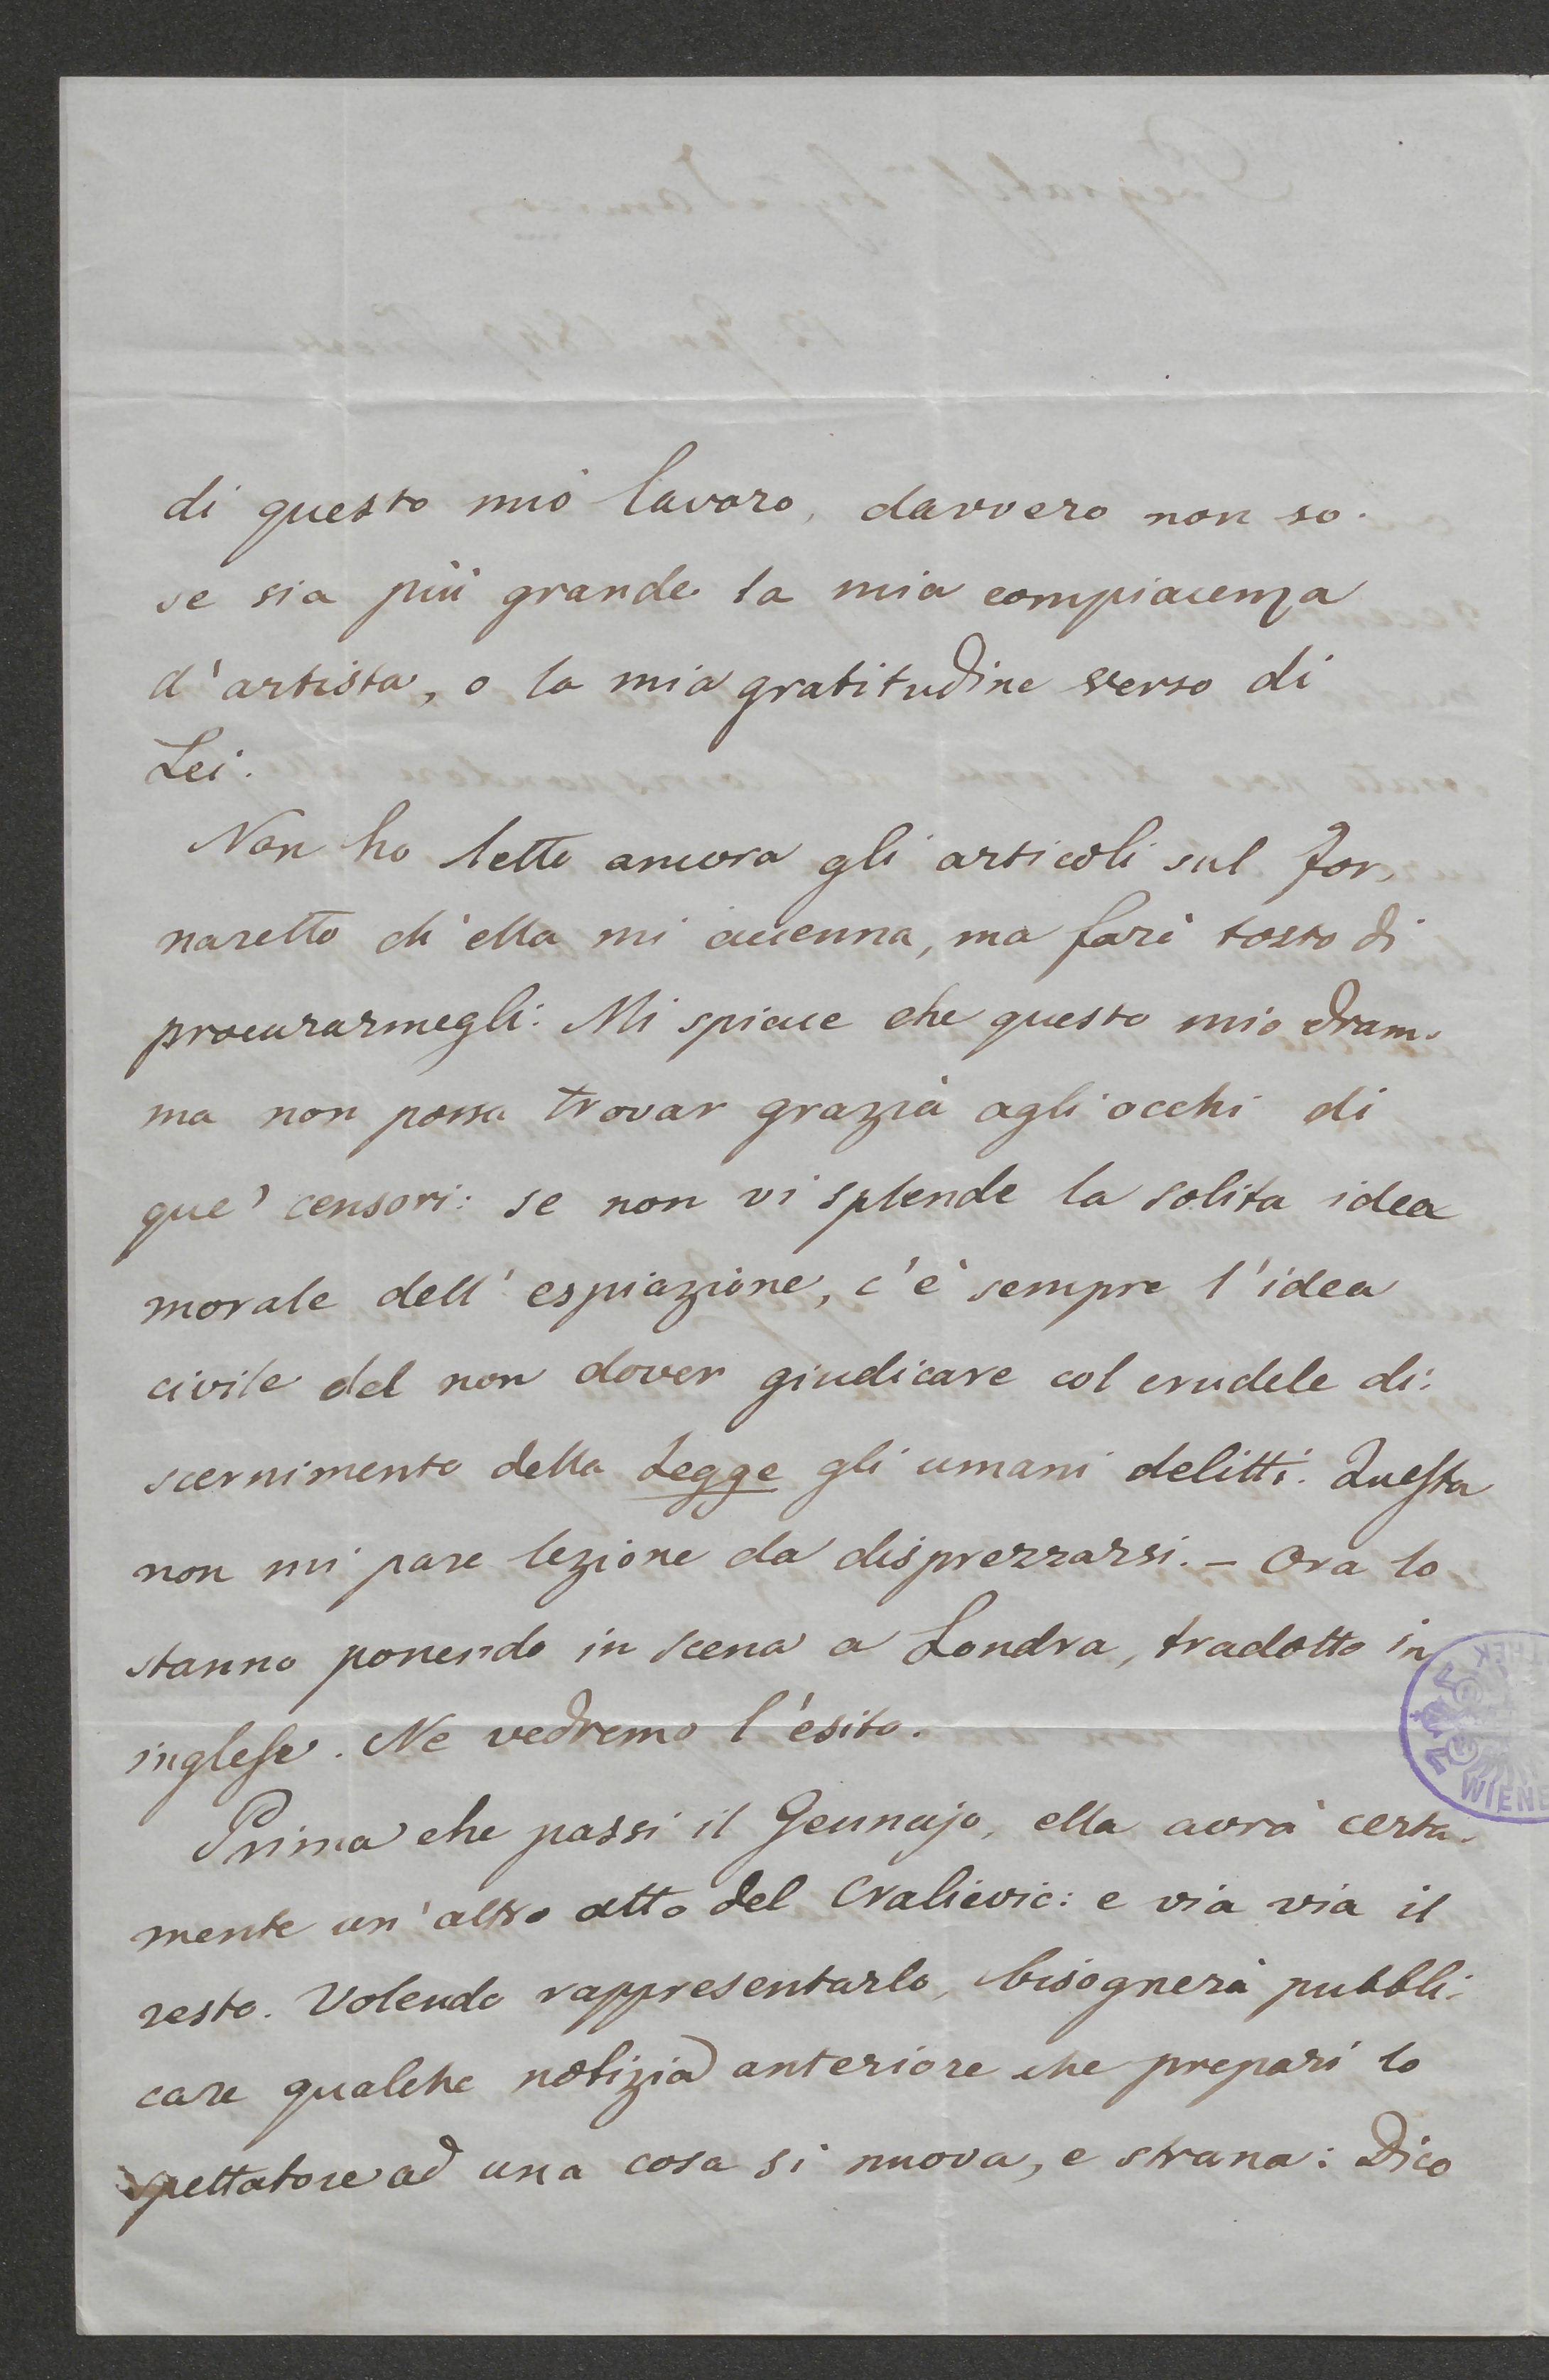 di questo mio lavoro, davvero non so
se sia più grande la mia compiacenza
d'artista, o la mia gratitudine verso di
Lei.
Non ho letto ancora gli articoli sul For,
naretto ch'ella mi accenna, ma farò tosto di
procurarmegli. Mi spiace che questo mio dram-
ma non possa trovar grazia agli occhi di
que' censori: se non vi splende la solita idea
morale dell'espiazione, c'è sempre l'idea
civile del non dover giudicare col crudele di:
scernimento della Legge gli umani delitti. Questa
non mi pare lezione da disprezzarsi. – Ora lo
stanno ponendo in scena a Londra, tradotto in
inglese. Ne vedremo l'esito.
Prima che passi il Gennajo, ella avrà certa-
mente un'altro atto del Cralievic: e via via il
resto. Volendo rappresentarlo, bisognerà pubbli-
care qualche notizia anteriore che prepari lo
spettatore ad una cosa sì nuova, e strana: Dico
WIENE